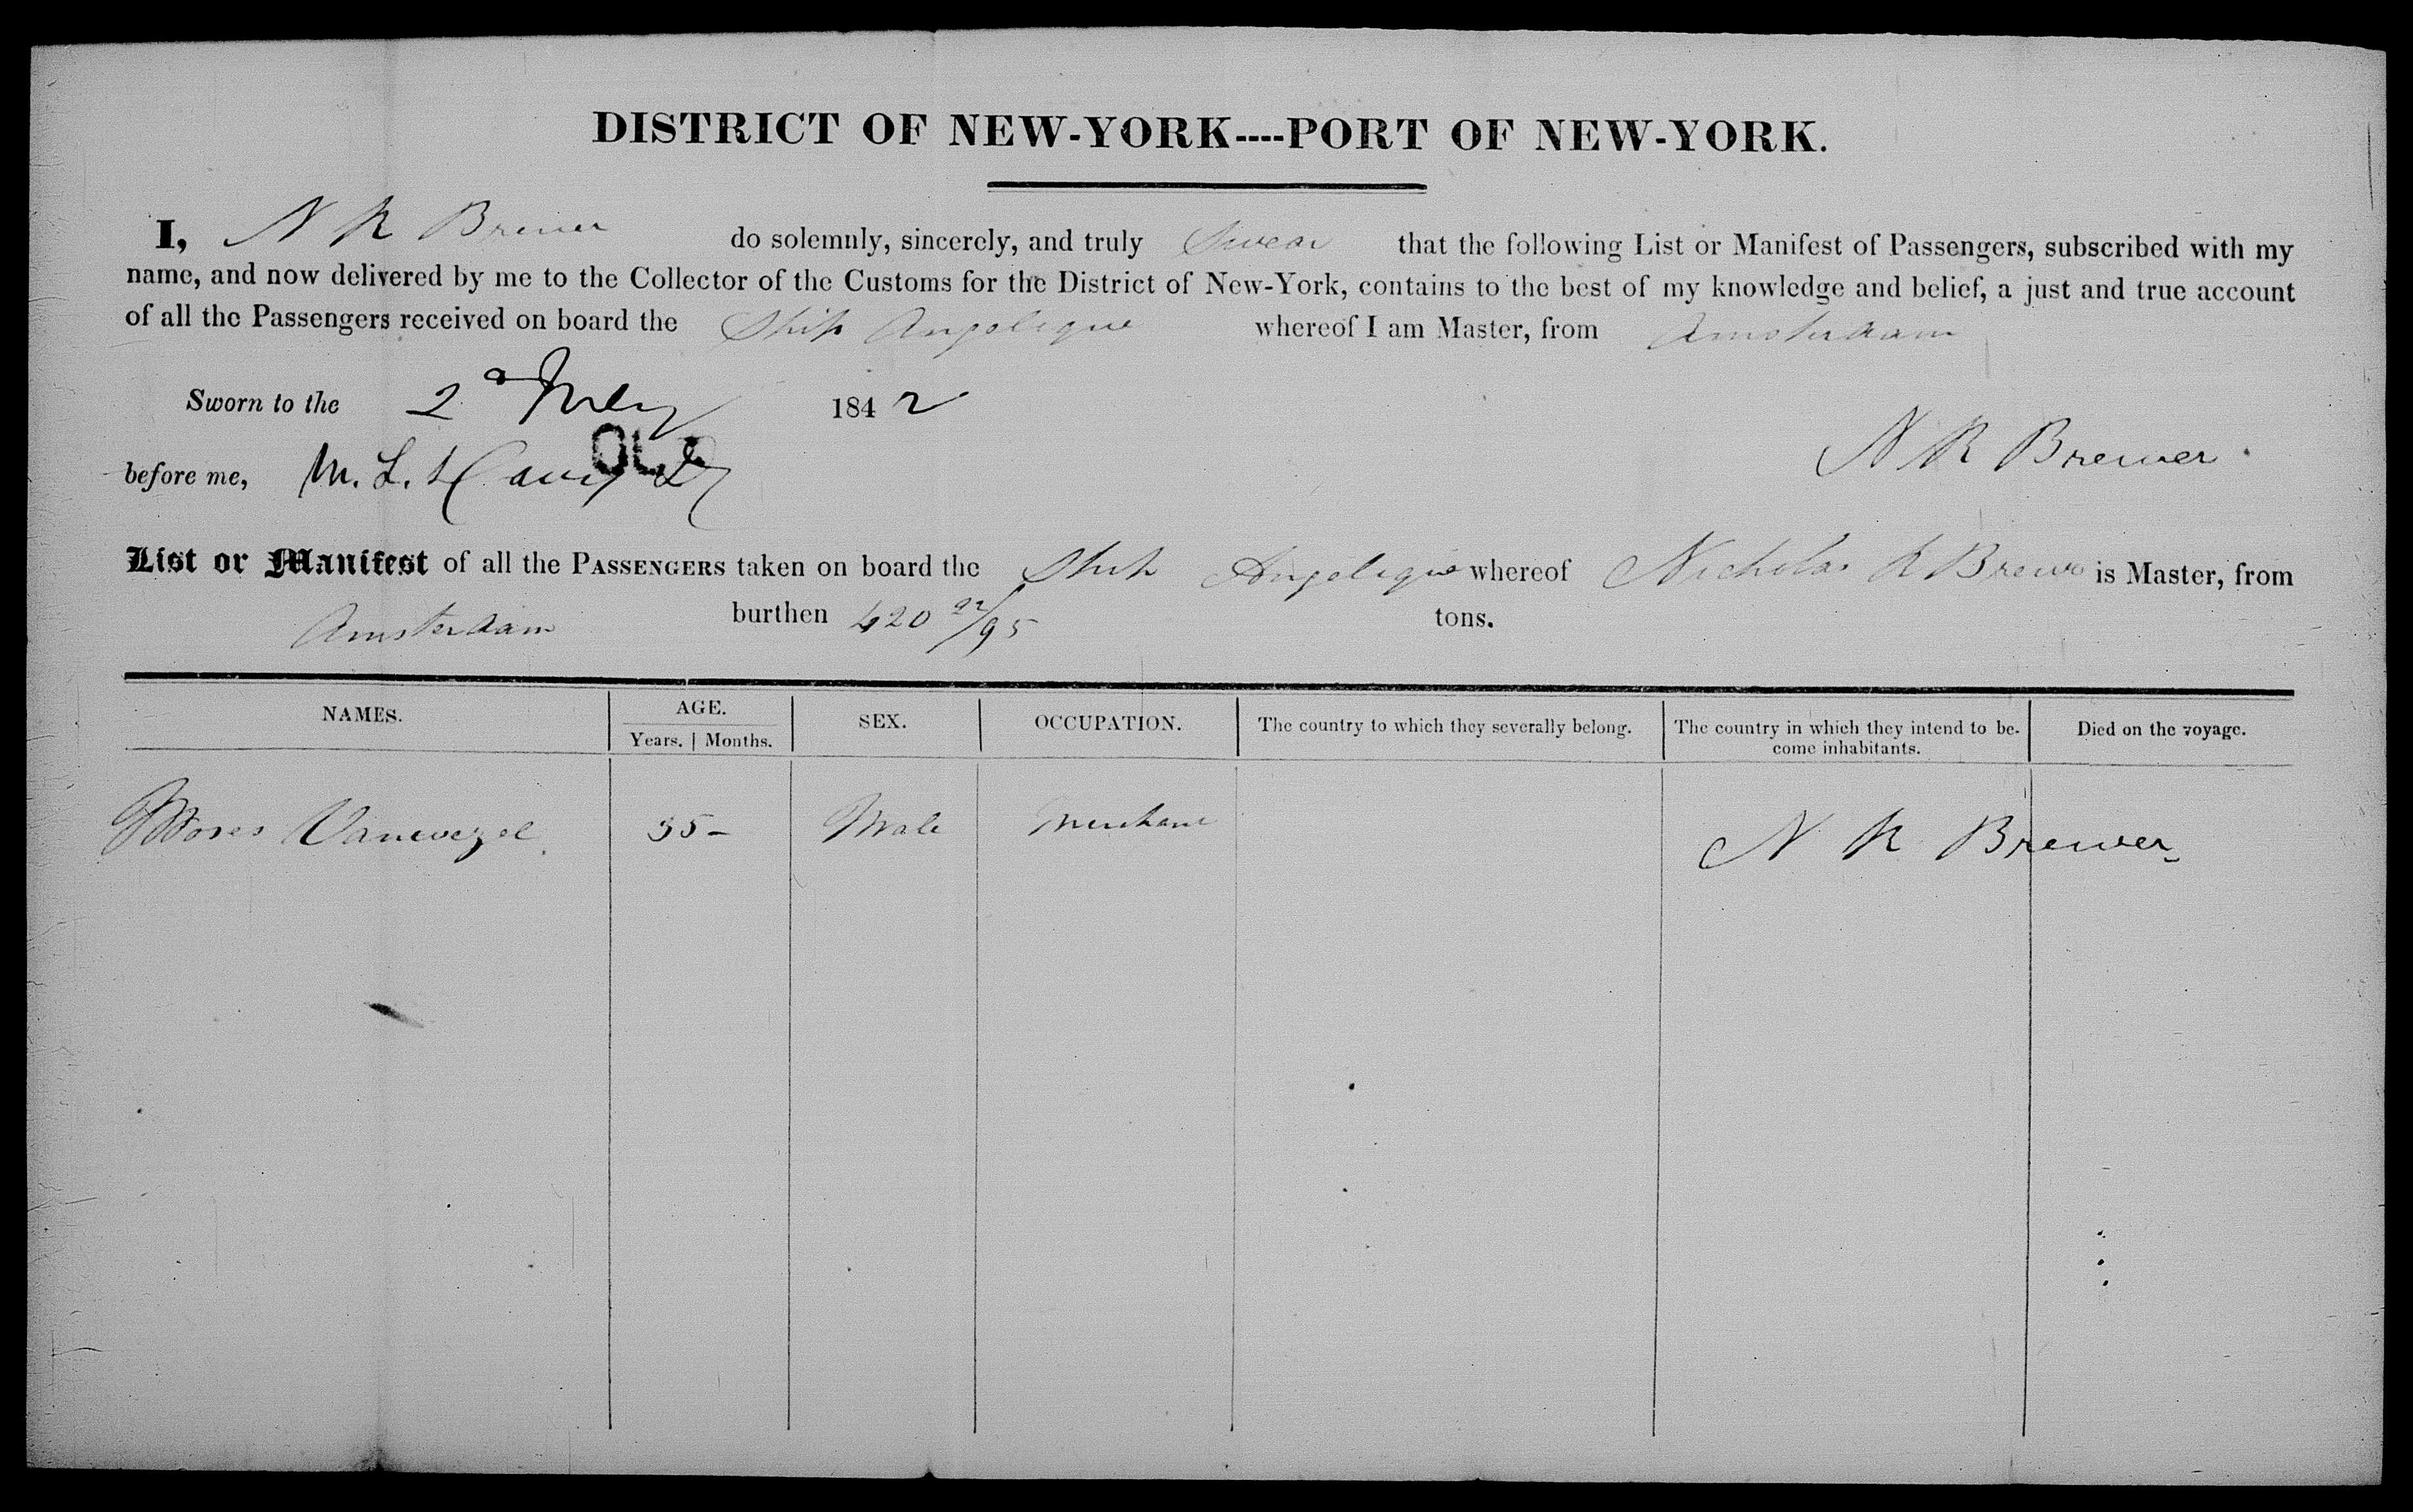 DISTRICT OF NEW-YORK----PORT OF NEW-YORK.
I, N R Brewer do solemnly, sincerely, and truly Swear that the following List or Manifest of Passengers, subscribed with my
name, and now delivered by me to the Collector of the Customs for the District of New-York, contains to the best of my knowledge and belief, a just and true account
of all the Passengers received on board the Ship Angelique whereof I am Master, from Amsterdam
Sworn to the 2d July 1842
before me, M. L.
N R Brewer.
List or Manifest of all the PASSENGERS taken on board the Ship Angelique whereof Nicholas R Brewer is Master, from
Amsterdam burthen 420 22/95 tons.
NAMES. AGE. Years. | Months. SEX. OCCUPATION. The country to which they severally belong. The country in which they intend to be-
come inhabitants. Died on the voyage.
Moses Vanwezel. 35 - Male Merchant N R Brewer